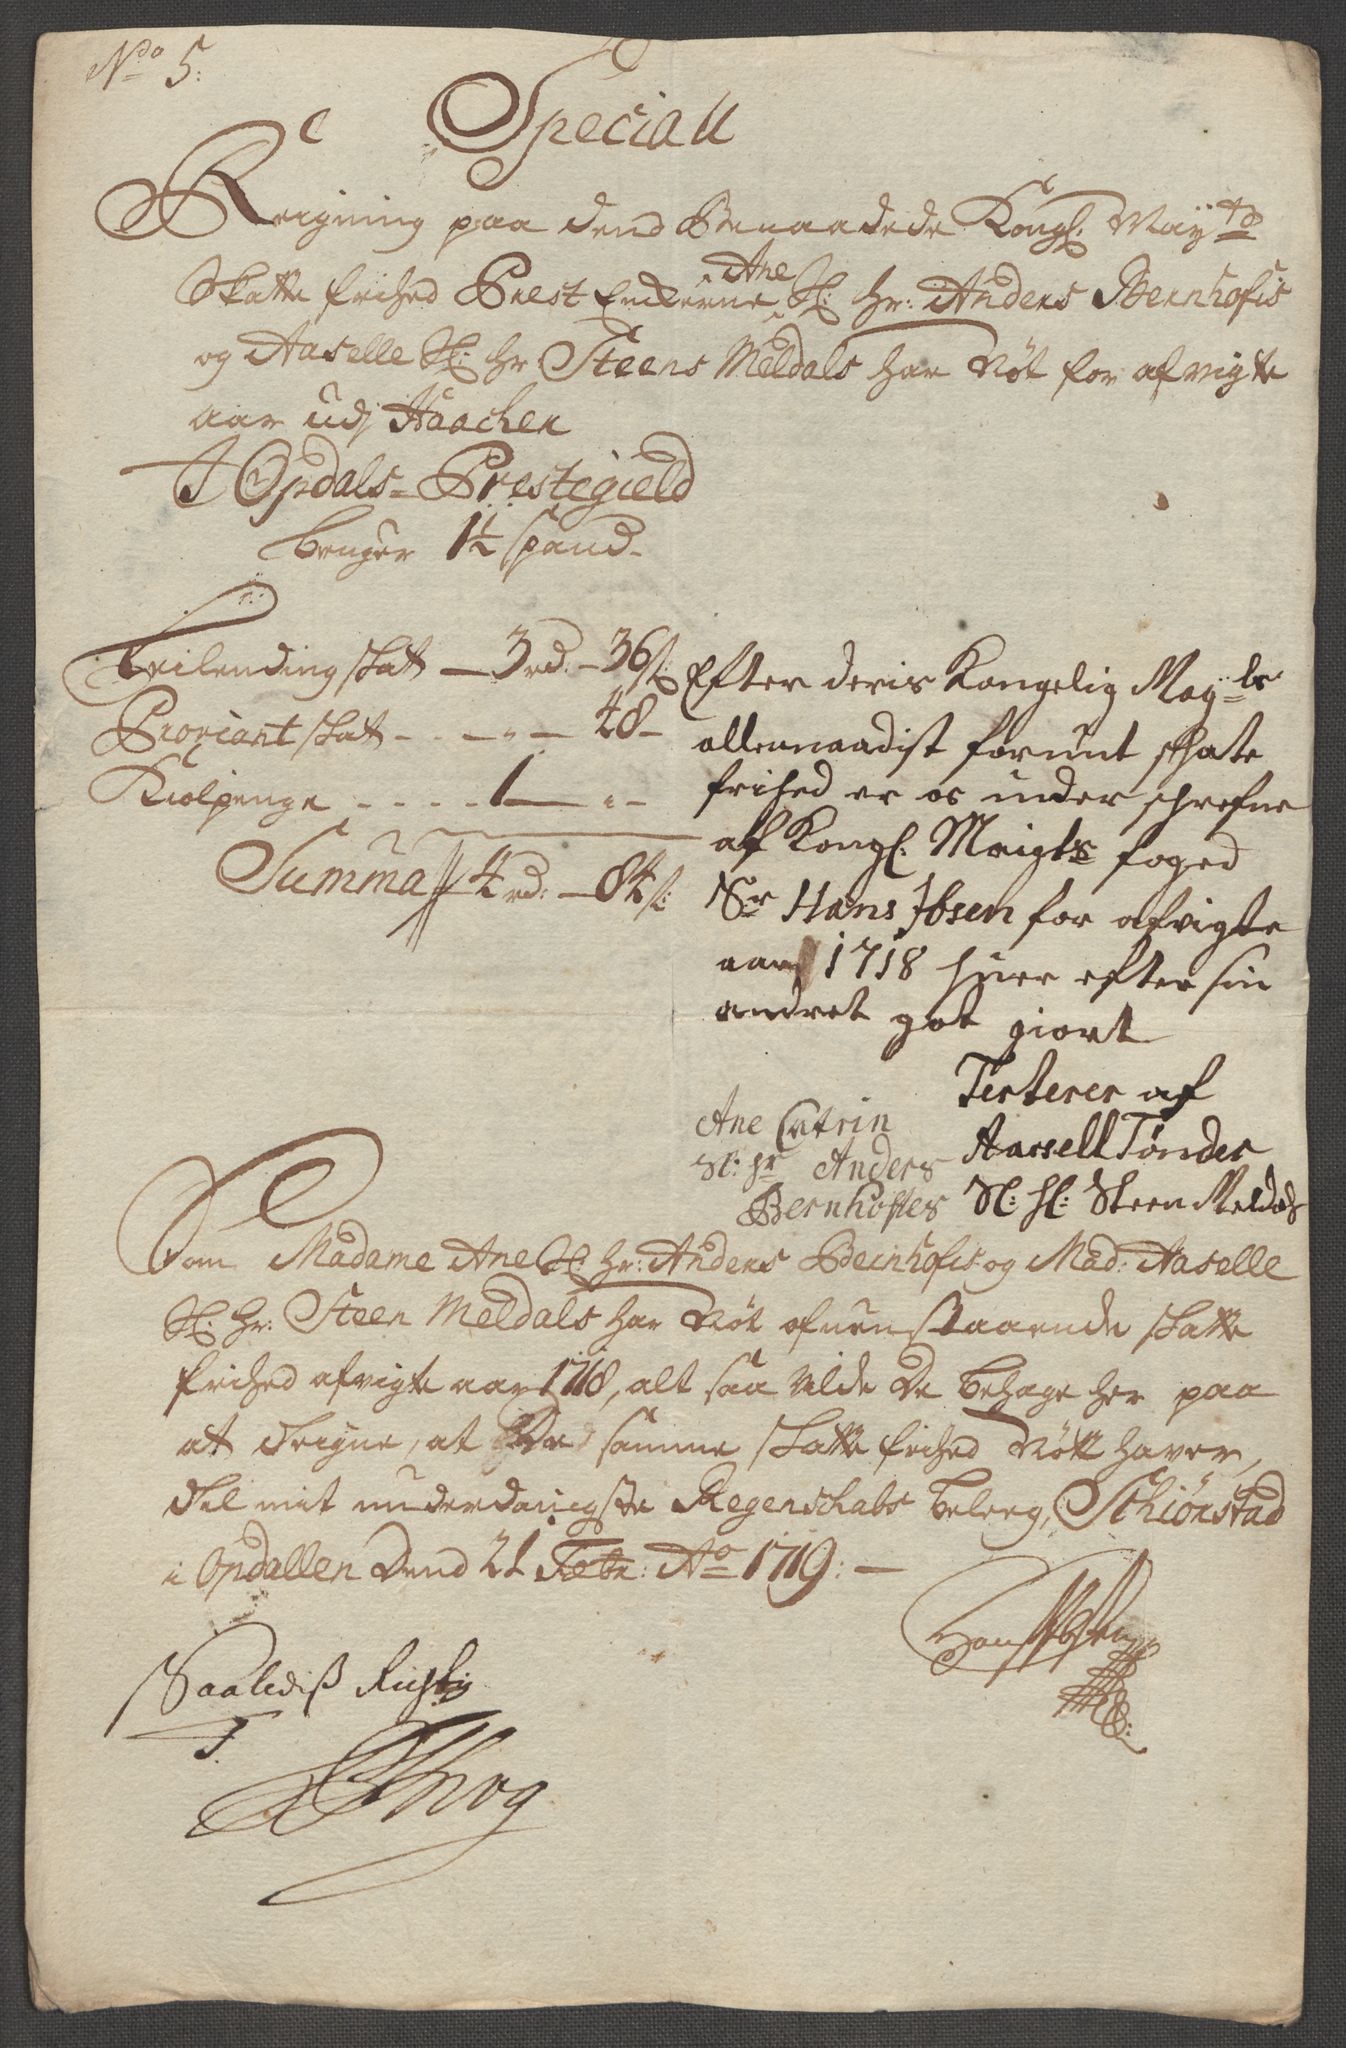 No 5:
Speciall
Reigning paa dend Benaadede Kongl: Mayts
Skatte frihed Prest Enkerne Ane Sl: Hr: Anders Bernhofts
og Aaselle Sl: Hr Steens Meldals har Nöt for afvigte
aar udj Haachen
J Opdals-Prestegield
bruger 1½ spand-
Leilending skat — 3 rd: — 36 s:
Proviant skat - - - - 48 -
Kiolpenge - - - - 1 — " -
Summa 4 rd: — 84 s:
Efter deris Kongelig Mayts
allernaadist forunt schate
frihed er os under schrefne
af Kongl. Maigts foged
Sr Hans Jbsen for afvigte
aar 1718 huer efter sin
andret got giort
Testerer af
Ane Catrin
Sl: Hr Anders
Bernhoftes
Aassell Tönder
Sl: Hl: Steen Meldals
Som Madame Ane Sl: Hr: Anders Bernhofts og Mad: Aaselle
Sl: Hr: Steen Meldals har Nöt ofuenstaaende skatte
frihed afvigte aar 1718, alt saa vilde De behage her paa
at teigne, at De samme skatte frihed Nött haver,
til mit underdanigste Regenschabs beleeg, Schiönstad
i Opdallen Dend 21 Febr: Ao 1719: —
Hans Jbsen
Saaledis Rigtig
T.